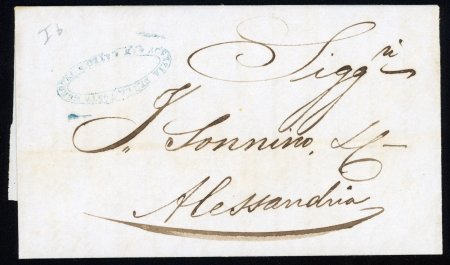 Sigg.ri
J. Sonnino, &C
Alessandria